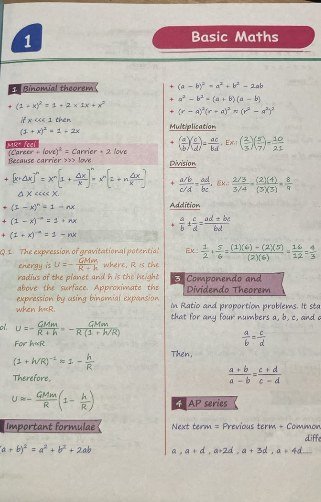 1
Basic Maths
1 Binomial theorem
+ (1 + x)² = 1 + 2 × 1x + x²
if x <<< 1 then
(1 + x)² = 1 + 2x
MR* feel
(Career + love)² = Carrier + 2 love
Because carrier >>> love
+ [x+Δx]ⁿ = xⁿ[1 + Δx/x]ⁿ = xⁿ[1 + n Δx/x]
Δx <<<< x.
+ (1 - x)ⁿ = 1 - nx
+ (1 - x)⁻ⁿ = 1 + nx
+ (1 + x)⁻ⁿ = 1 - nx
Q 1. The expression of gravitational potential
energy is U = - GMm/R + h where, R is the
radius of the planet and h is the height
above the surface. Approximate the
expression by using binomial expansion
when h<<R.
ol. U = - GMm/R + h = - GMm/R (1 + h/R)
For h<<R
(1 + h/R)⁻¹ ≈ 1 - h/R
Therefore,
U ≈ - GMm/R (1 - h/R)
Important formulae
(a + b)² = a² + b² + 2ab
+ (a - b)² = a² + b² - 2ab
+ a² - b² = (a + b) (a - b)
Multiplication
+ (a/b)(c/d) = ac/bd, Ex.: (2/3)(5/7) = 10/21
Division
+ a/b / c/d = ad/bc, Ex.: 2/3 / 3/4 = (2)(4)/(3)(3) = 8/9
Addition
+ a/b ± c/d = ad ± bc/bd
3 Componendo and
Dividendo Theorem
In Ratio and proportion problems. It sta
that for any four numbers a, b, c, and d
a/b = c/d
Then,
a + b/a - b = c + d/c - d
4 AP series
Next term = Previous term + Common
diffe
a , a + d , a+2d , a + 3d , a + 4d....